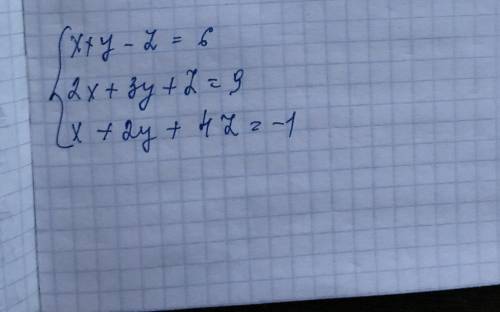 x+y-z=6
2x+3y+z=9
x+2y+4z=-1